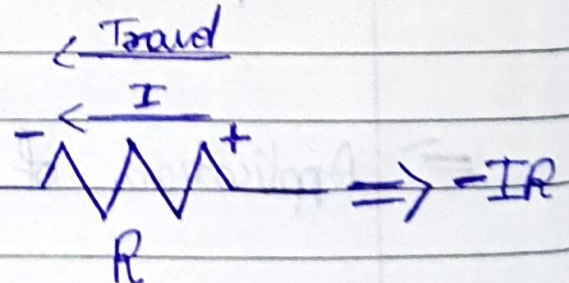 Travel
I
- +
⇒ -IR
R